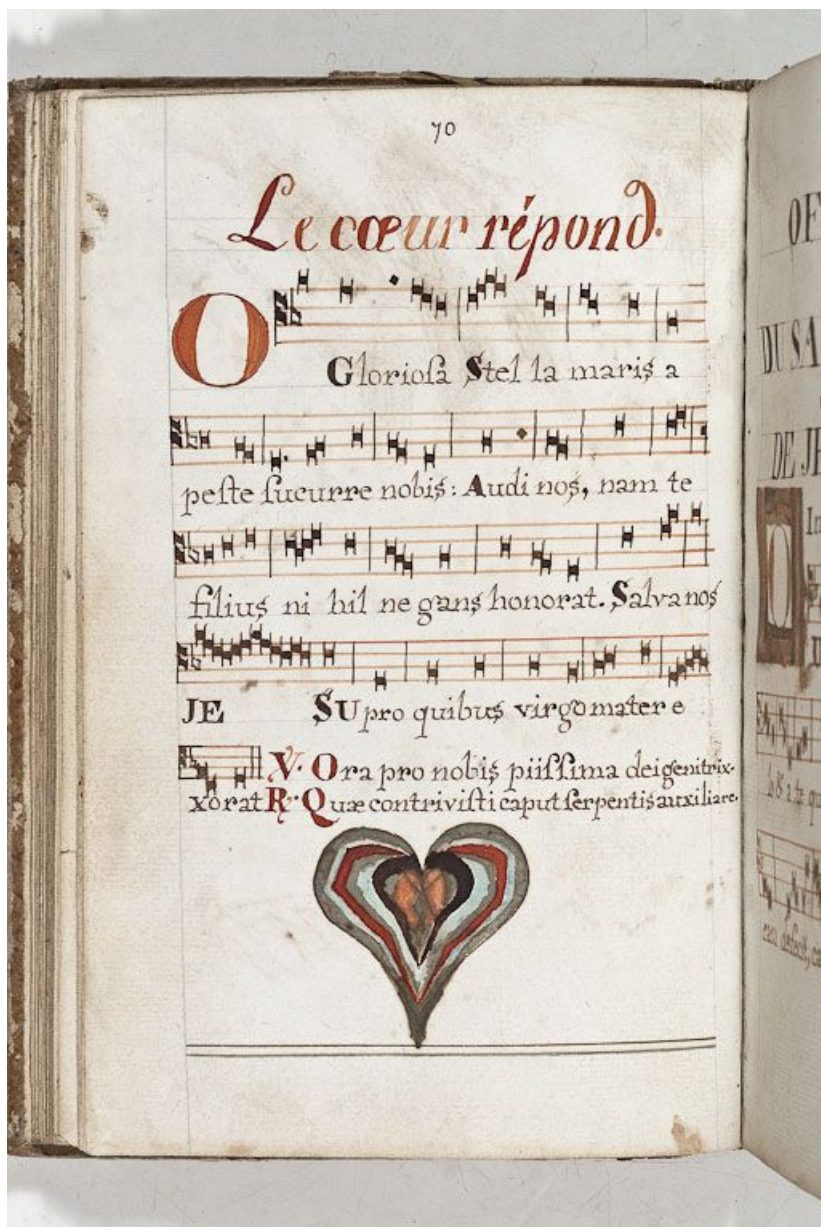 70
Le cœur répond.
O
Glorioſa Stel la maris a
peſte ſucurre nobis: Audi nos, nam te
filius ni hil ne gans honorat. Salva nos
JE SU pro quibus virgo mater e
V. Ora pro nobis piiſſima dei genitrix.
xorat R. Quæ contriviſti caput ſerpentis auxiliare.
OF
DU SA
DE JE
O